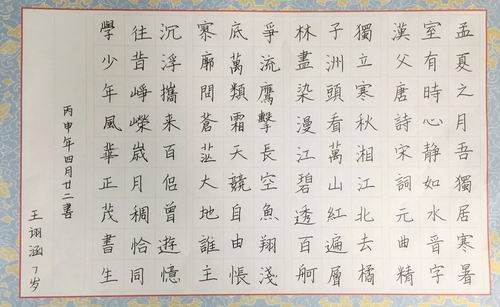 孟夏之月吾獨居寒暑
室有時心靜如水晉字
漢父唐詩宋詞元曲精
獨立寒秋湘江北去橘
子洲頭看萬山紅遍層
林盡染漫江碧透百舸
爭流鷹擊長空魚翔淺
底萬類霜天競自由悵
寥廓問蒼茫大地誰主
沉浮攜来百侶曾遊憶
往昔崢嶸歲月稠恰同
學少年風華正茂書生
丙申年四月廿二書
王诩涵7岁